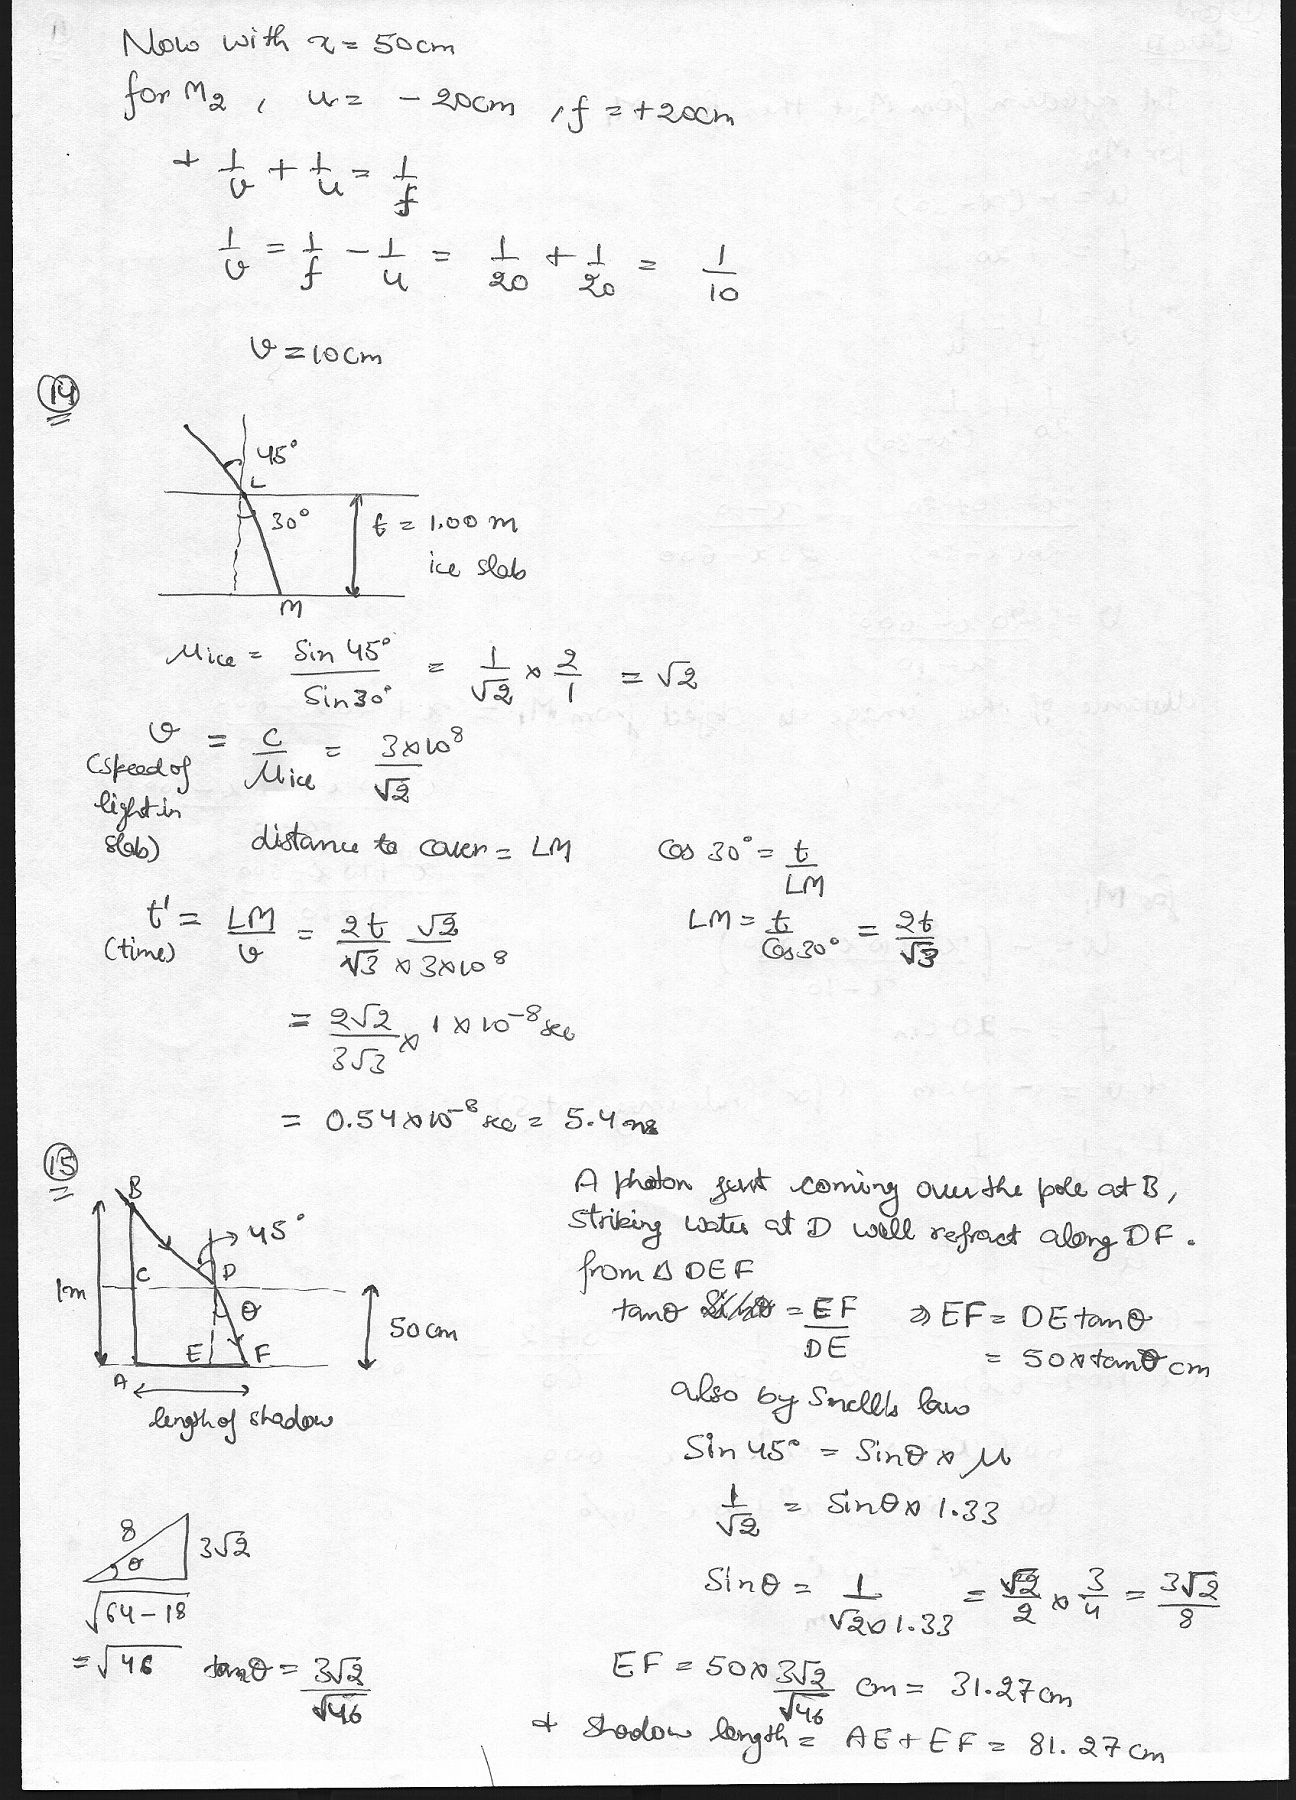 Now with x = 50cm
for M2 , u = - 20cm , f = +20cm
+ 1/v + 1/u = 1/f
1/v = 1/f - 1/u = 1/20 + 1/20 = 1/10
v = 10cm
14
45°
L
30°
t = 1.00 m
ice slab
M
μice = Sin 45° / Sin 30° = 1/√2 × 2/1 = √2
v = c/μice = 3×10^8/√2
(speed of
light in
slab)
distance to cover = LM
Cos 30° = t/LM
t' = LM/v = 2t/√3 √2/×3×10^8
(time)
LM = t/Cos30° = 2t/√3
= 2√2/3√3 × 1 × 10^-8 sec
= 0.54×10^-8 sec = 5.4 ns
15
B
45°
C
D
1m
θ
50 cm
E
F
A
length of shadow
A photon just coming over the pole at B,
striking water at D will refract along DF.
from Δ DEF
tanθ = EF/DE ⇒ EF = DE tanθ
= 50×tanθ cm
also by Snell's law
Sin 45° = Sinθ × μ
1/√2 = Sinθ × 1.33
Sinθ = 1/√2×1.33 = √2/2 × 3/4 = 3√2/8
8
θ
3√2
√64-18
= √46
tanθ = 3√2/√46
EF = 50×3√2/√46 cm = 31.27cm
+ shadow length = AE + EF = 81.27cm